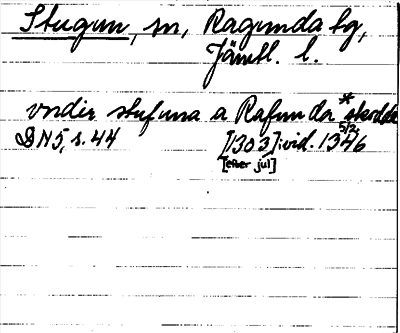 Stugun, sn, Ragunda tg,
Jämtl. l.
vndir stufuna a Rafunda *skodde
DN 5, s. 44 [1303] vid. 5/2 1346
[efter jul]